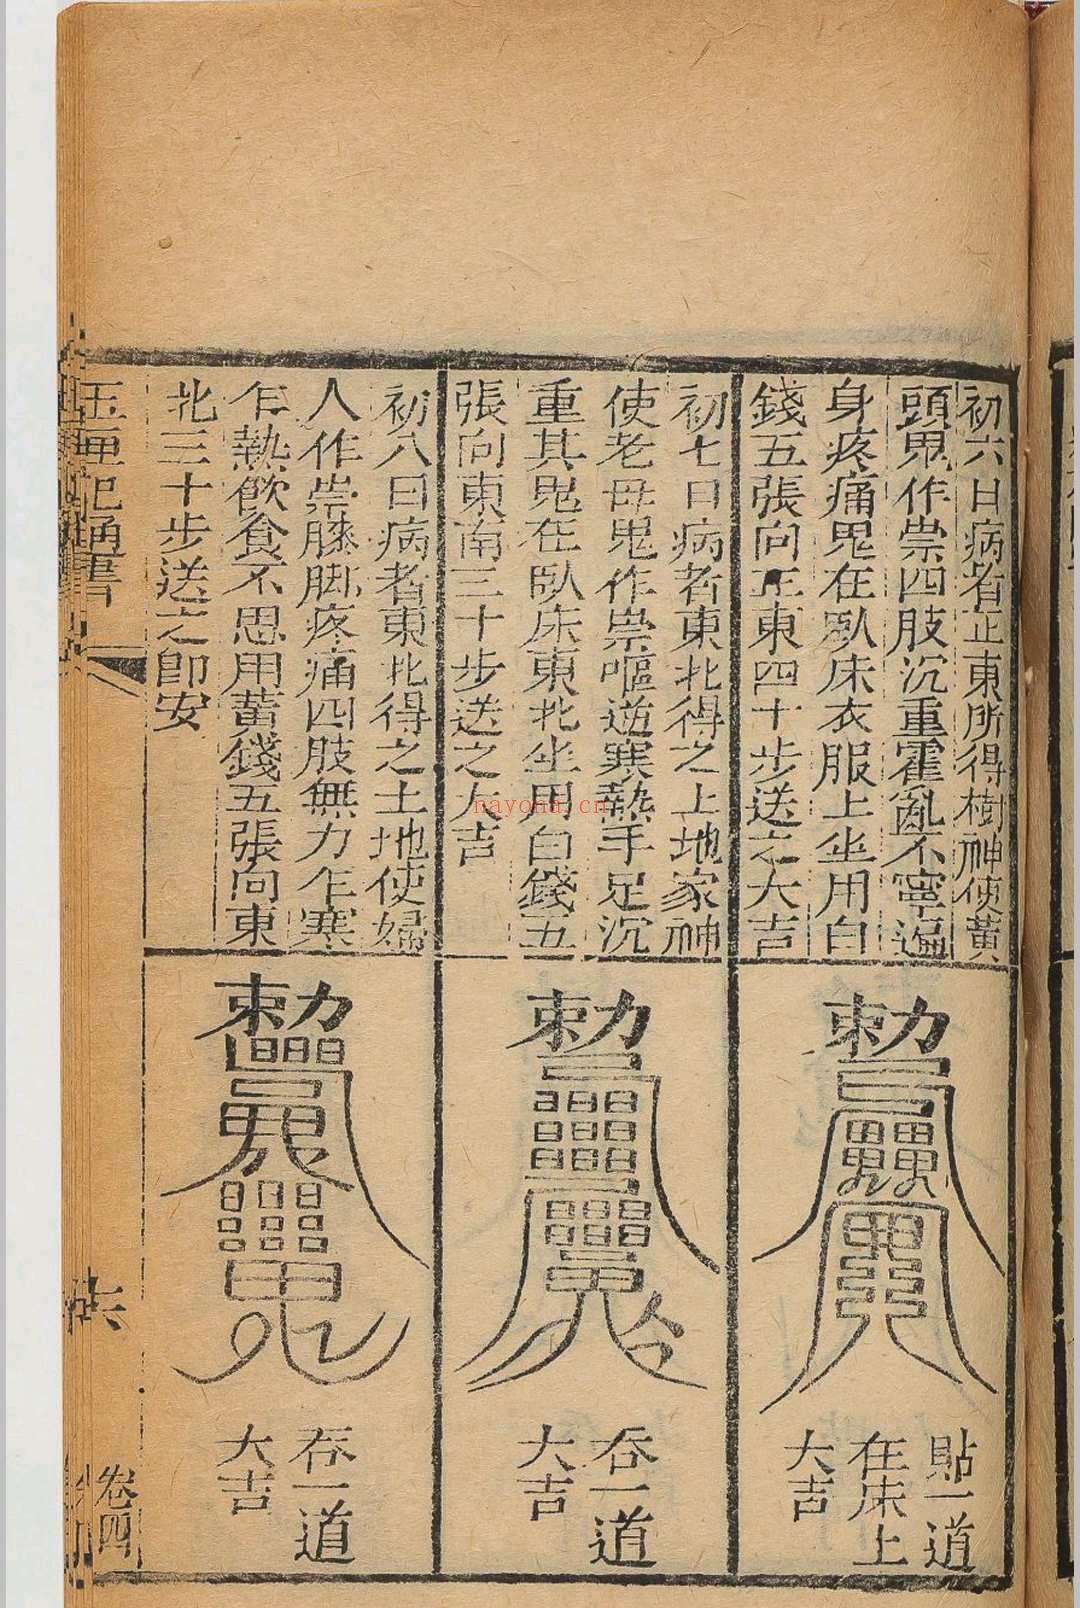 初六日病者正東所得樹神使黃
頭鬼作祟四肢沉重霍亂不寧遍
身疼痛鬼在臥床衣服上坐用白
錢五張向正東四十步送之大吉
初七日病者東北得之土地家神
使老母鬼作祟嘔逆寒熱手足沉
重其鬼在臥床東北坐用白錢五
張向東南三十步送之大吉
初八日病者東北得之土地使婦
人作祟膝脚疼痛四肢無力乍寒
乍熱飲食不思用黃錢五張向東
北三十步送之即安
勅令
貼一道
在床上
大吉
勅
吞一道
大吉
勅
吞一道
大吉
玉匣記通書
卷四
nayona.cn